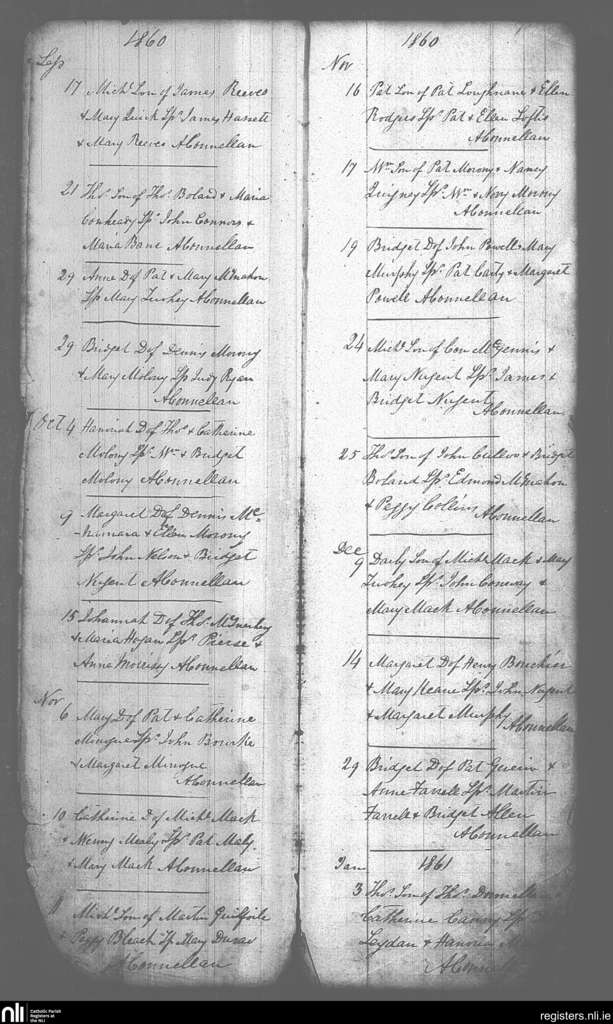 1860
Sep
17 Michl Son of James Reeves
& Mary Quick Sps James Hassett
& Mary Reeves AConnellan
21 Thos Son of Thos Boland & Maria
Conheady Sps John Connors &
Maria Bane AConnellan
29 Anne D of Pat & Mary McMahon
Sps Mary Tuohey AConnellan
29 Bridget D of Dennis Morony
& Mary Molony Sps Judy Ryan
AConnellan
Oct 4 Hannah D of Thos & Catherine
Molony Sps Wm & Bridget
Molony AConnellan
9 Margaret D of Dennis Mc
Namara & Ellen Morony
Sps John Nelson & Bridget
Nugent AConnellan
15 Johannah D of Thos McInerhey
& Maria Hogan Sps Pierse &
Anne Morrissy AConnellan
Nov
6 Mary D of Pat & Catherine
Minogue Sps John Bourke
& Margaret Minogue
AConnellan
10 Catherine D of Michl Mack
& Mealy Sps Pat Mealy
& Mary Mack AConnellan
11 Michl Son of Martin Guilfoile
& Peggy Bleach Sp Mary
AConnellan
1860
Nov
16 Pat Son of Pat Loughnane & Ellen
Rodgers Sps Pat & Ellen Loftis
AConnellan
17 Wm Son of Pat Morony & Nancy
Quigney Sps Wm & Morony
AConnellan
19 Bridget D of John Powell & Mary
Murphy Sps Pat Carty & Margaret
Powell AConnellan
24 Michl Son of Con McGennis &
Mary Nugent Sps James &
Bridget Nugent AConnellan
25 Thos Son of John & Bridget
Boland Sps Edmond McMahon
& Peggy Collins AConnellan
Dec
9 Darly Son of Michl Mack & Mary
Tuohey Sps John Conway &
Mary Mack AConnellan
14 Margaret D of Henry Bouchier
& Mary Keane Sps John Nugent
& Margaret Murphy AConnellan
29 Bridget D of Pat Guerin &
Anne Farrell Sps Martin
Farrell & Bridget Allen
AConnellan
Jan 1861
3 Thos Son of Thos
Catherine Canny Sps
Leydan & Hanora
nli Catholic Parish
Registers at
the NLI
registers.nli.ie